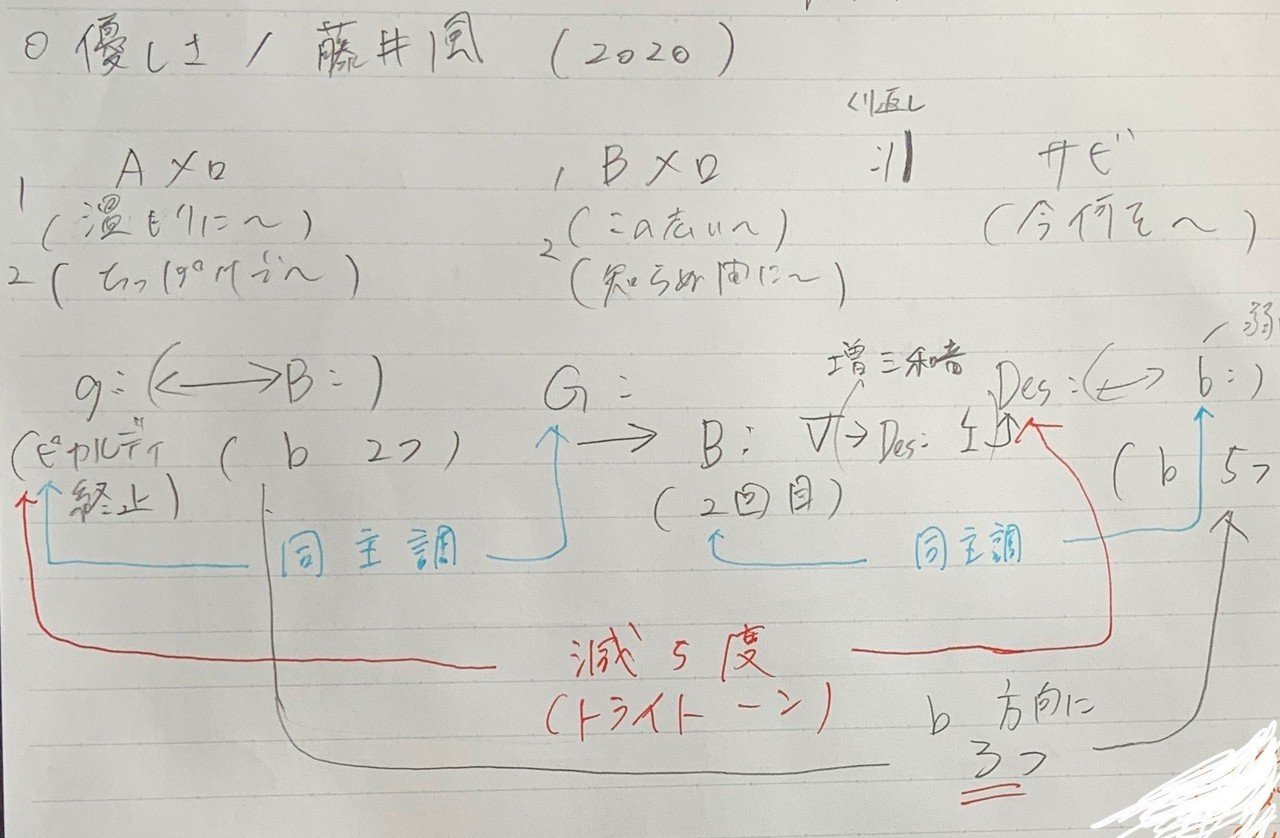 ○ 優しさ / 藤井風 (2020)
くり返し
Aメロ
1 (温もりに〜)
2 (ちっぽけな〜)
Bメロ
1 (この志い〜)
2 (知らぬ間に〜)
:||
サビ
(今何を〜)
g: (⟷ B:)
(ピカルディ終止)
(b 2つ)
G:
→ B: V → Des: I
(2回目)
増三和音
Des: (⟷ b:)
弱
(b 5つ)
同主調
同主調
減5度
(トライトーン)
b 方向に
3つ